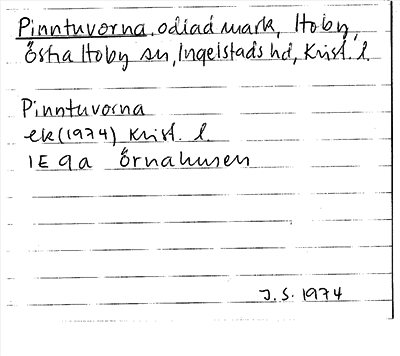 Pinntuvorna, odlad mark, Hoby,
Östra Hoby sn, Ingelstads hd, Krist. l.
Pinntuvorna
ek (1974) Krist. l.
1E 9a Örnahusen
J.S. 1974